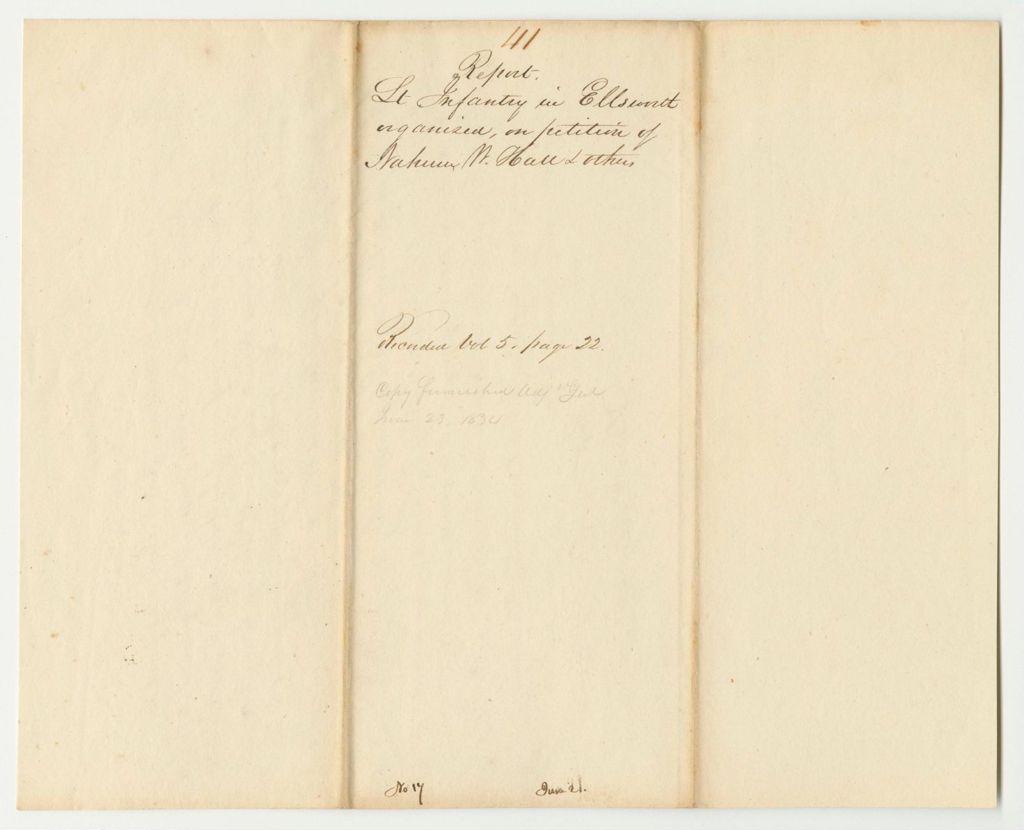 41
Report.
Lt Infantry in Ellsworth
organized, on petition of
Nahum W. Hall & others
Recorded Vol 5. page 22.
Copy furnished Adj Genl
June 23. 1834
No 17
June 21.